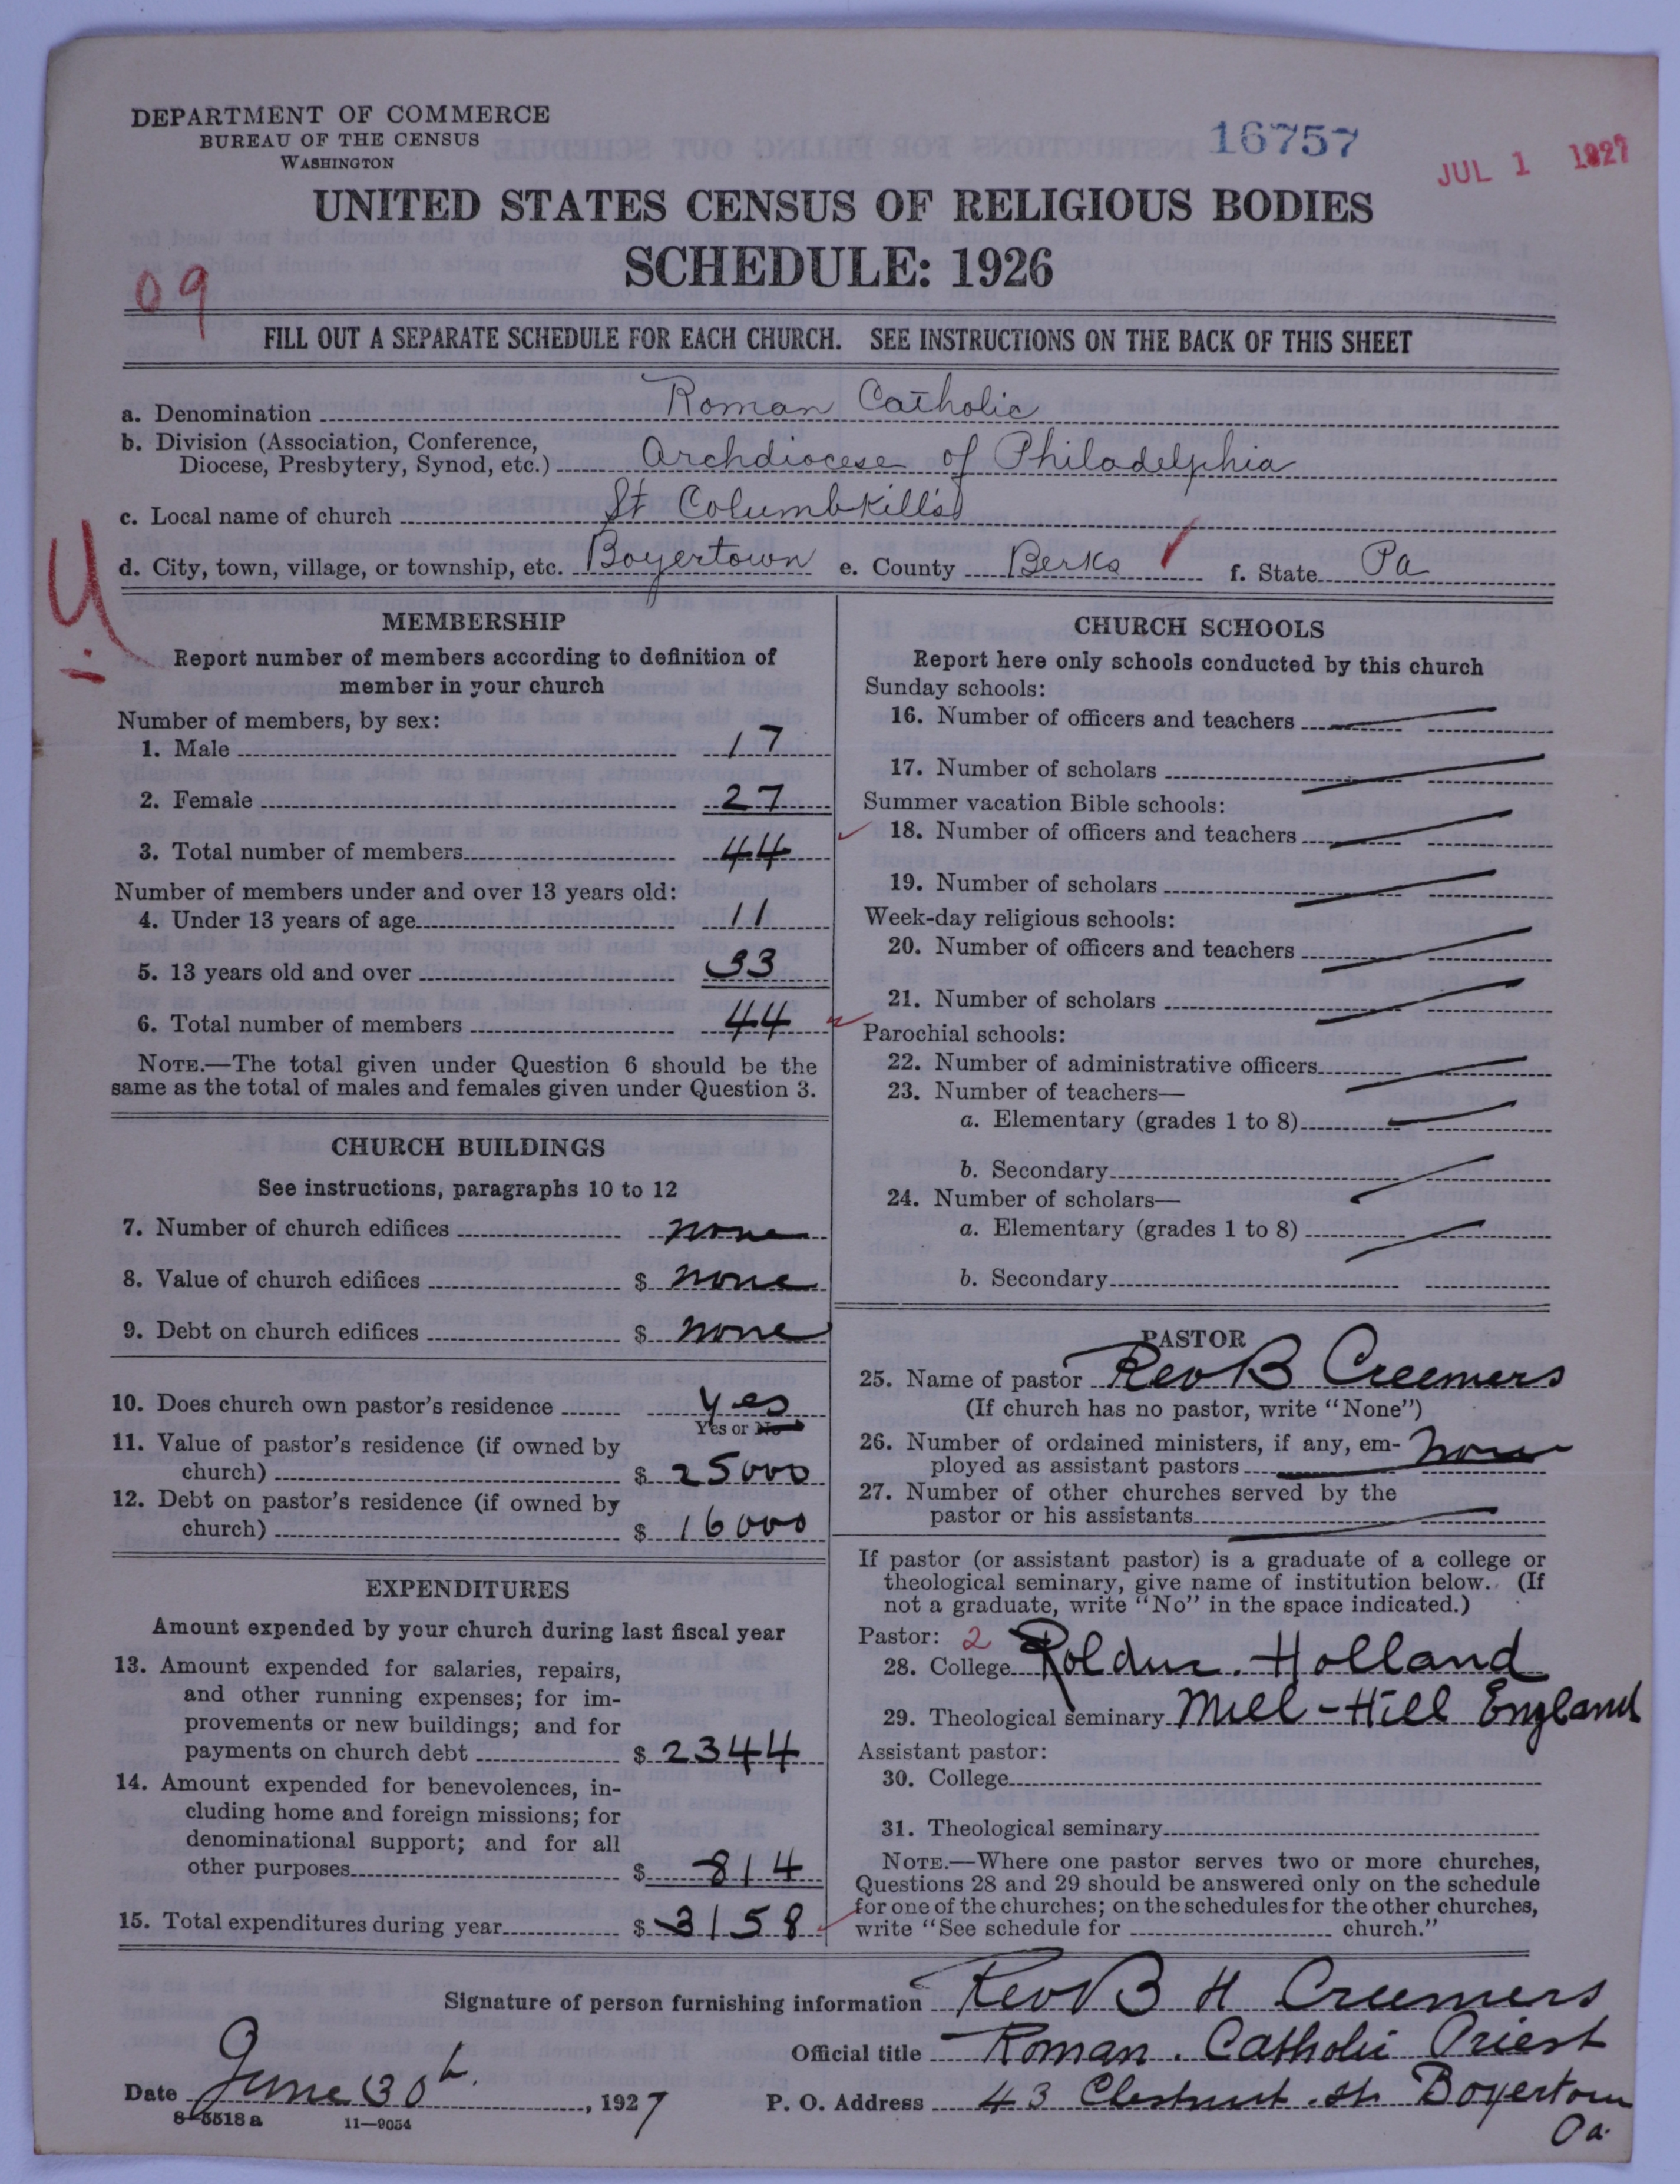 DEPARTMENT OF COMMERCE
BUREAU OF THE CENSUS
WASHINGTON
16757
JUL 1 1927
UNITED STATES CENSUS OF RELIGIOUS BODIES
SCHEDULE: 1926
09
FILL OUT A SEPARATE SCHEDULE FOR EACH CHURCH. SEE INSTRUCTIONS ON THE BACK OF THIS SHEET
a. Denomination Roman Catholic
b. Division (Association, Conference,
Diocese, Presbytery, Synod, etc.) Archdiocese of Philadelphia
c. Local name of church St Columbkill's
d. City, town, village, or township, etc. Boyertown e. County Berks f. State Pa
MEMBERSHIP
Report number of members according to definition of
member in your church
Number of members, by sex:
1. Male 17
2. Female 27
3. Total number of members 44
Number of members under and over 13 years old:
4. Under 13 years of age 11
5. 13 years old and over 33
6. Total number of members 44
NOTE.—The total given under Question 6 should be the
same as the total of males and females given under Question 3.
CHURCH BUILDINGS
See instructions, paragraphs 10 to 12
7. Number of church edifices none
8. Value of church edifices $ none
9. Debt on church edifices $ none
10. Does church own pastor's residence yes
Yes or No
11. Value of pastor's residence (if owned by
church) $ 25000
12. Debt on pastor's residence (if owned by
church) $ 16000
EXPENDITURES
Amount expended by your church during last fiscal year
13. Amount expended for salaries, repairs,
and other running expenses; for im-
provements or new buildings; and for
payments on church debt $ 2344
14. Amount expended for benevolences, in-
cluding home and foreign missions; for
denominational support; and for all
other purposes $ 814
15. Total expenditures during year $ 3158
CHURCH SCHOOLS
Report here only schools conducted by this church
Sunday schools:
16. Number of officers and teachers
17. Number of scholars
Summer vacation Bible schools:
18. Number of officers and teachers
19. Number of scholars
Week-day religious schools:
20. Number of officers and teachers
21. Number of scholars
Parochial schools:
22. Number of administrative officers
23. Number of teachers—
a. Elementary (grades 1 to 8)
b. Secondary
24. Number of scholars—
a. Elementary (grades 1 to 8)
b. Secondary
PASTOR
25. Name of pastor Rev B Creemers
(If church has no pastor, write "None")
26. Number of ordained ministers, if any, em-
ployed as assistant pastors none
27. Number of other churches served by the
pastor or his assistants
If pastor (or assistant pastor) is a graduate of a college or
theological seminary, give name of institution below. (If
not a graduate, write "No" in the space indicated.)
Pastor: 2
28. College Rolduc. Holland
29. Theological seminary Mill-Hill England
Assistant pastor:
30. College
31. Theological seminary
NOTE.—Where one pastor serves two or more churches,
Questions 28 and 29 should be answered only on the schedule
for one of the churches; on the schedules for the other churches,
write "See schedule for church."
Signature of person furnishing information Rev B H Creemers
Official title Roman. Catholic Priest
Date June 30th, 1927 P. O. Address 43 Chestnut. St. Boyertown
Pa.
8-5518a 11—9054